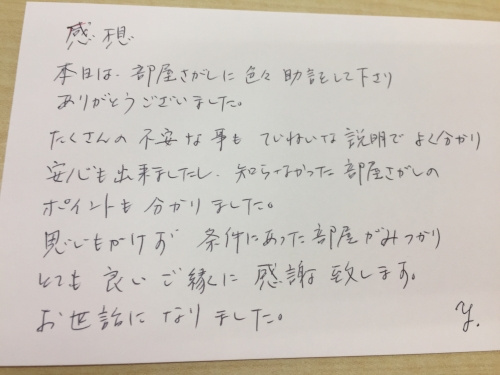 感想
本日は、部屋さがしに色々助言をして下さり
ありがとうございました。
たくさんの不安な事もていねいな説明でよく分かり
安心も出来ましたし、知らなかった部屋さがしの
ポイントも分かりました。
思いもかけず 条件にあった部屋がみつかり
とても良いご縁に感謝致します。
お世話になりました。
y.